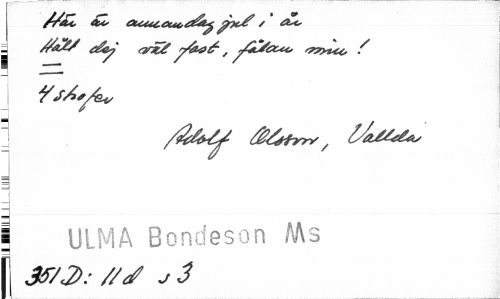 Här är annandag jul i år
Hållt dej väl fast, fålan min!
4 strofer
Adolf Olsson, Vallda
ULMA Bondeson Ms
351 D: 11 d s 3